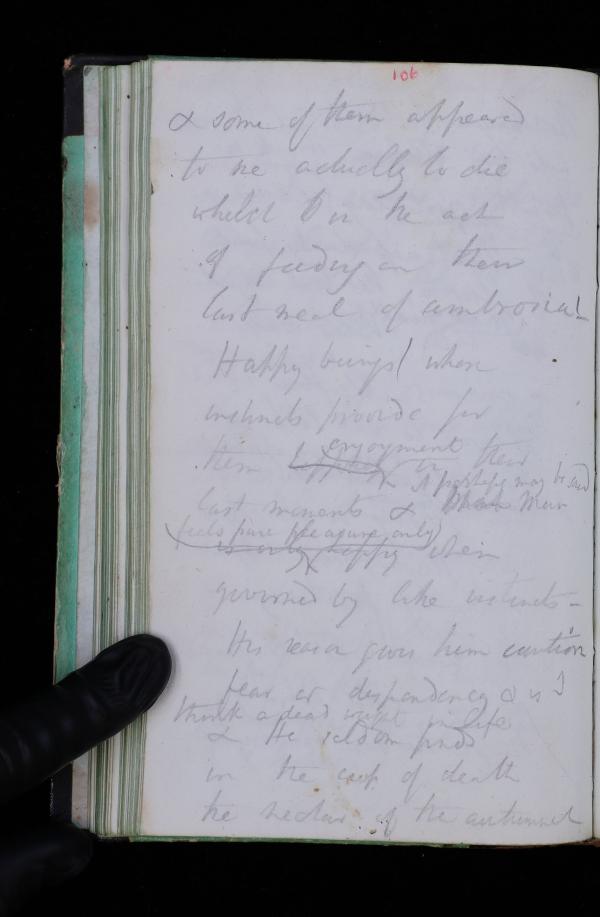 106
& some of them appeared
to me actually to die
whilst in the act
of feeding on their
last meal of ambrosia!
Happy beings! whose
instincts provide for
them enjoyment in their
& perhaps may be said
last moments & Man
feels pure pleasure only
is only happy when
governed by like instincts -
His reason gives him caution
fear or despondency & is I
think a dead weight in life
& He seldom finds
in the cup of death
the nectar of the autumnal